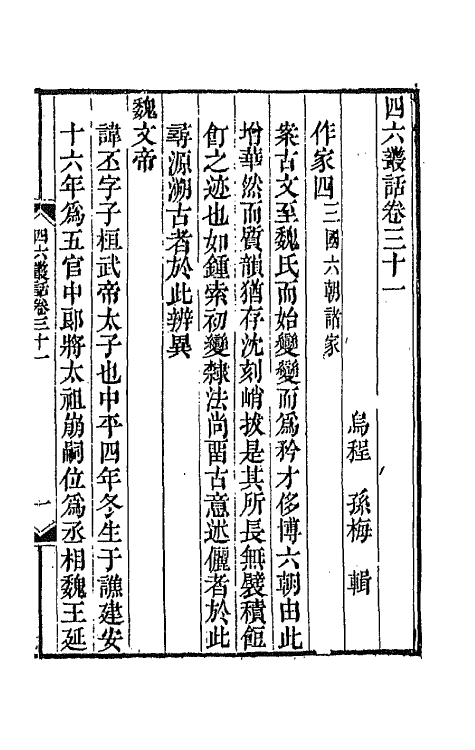 四六叢話卷三十一
烏程 孫梅 輯
作家四三國六朝諸家
案古文至魏氏而始變變而爲矜才侈博六朝由此
增華然而質韻猶存沈刻峭拔是其所長無襞積餖
飣之迹也如鍾索初變隸法尚畱古意述儷者於此
尋源溯古者於此辨異
魏文帝
諱丕字子桓武帝太子也中平四年冬生于譙建安
十六年爲五官中郎將太祖崩嗣位爲丞相魏王延
四六叢話卷三十一
一